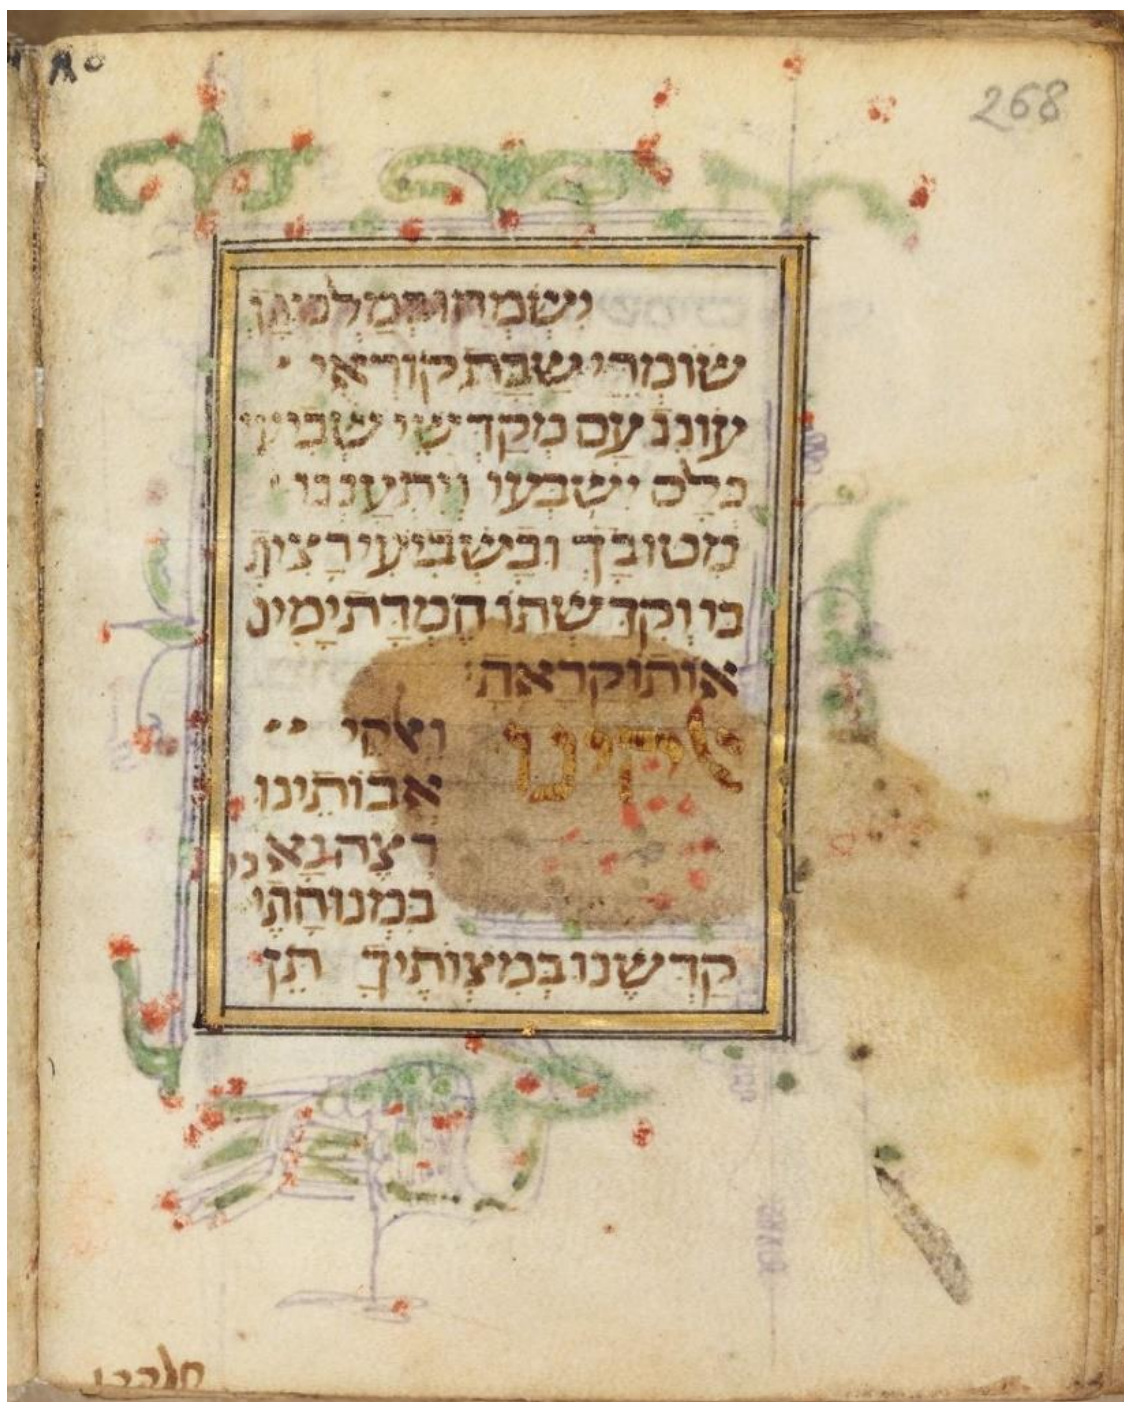 268
יִשְׂמְחוּ בְמַלְכוּתָךְ
שׁוֹמְרֵי שַׁבָּת קוֹרְאֵי
עוֹנֶג עַם מְקַדְּשֵׁי שְׁבִיעִי
כֻּלָּם יִשְׂבְּעוּ וְיִתְעַנְּגוּ
מִטוּבָךְ וּבַשְׁבִיעִי רָצִיתָ
בּוֹ וְקִדַּשְׁתּוֹ חֶמְדַּת יָמִים
אוֹתוֹ קָרָאתָ׃
אלקינו ואלקי
אֲבוֹתֵינוּ
רְצֵה נָא
בִּמְנוּחָתֵי
קַדְּשֵׁנוּ בְּמִצְוֹתֶיךָ תֵּן